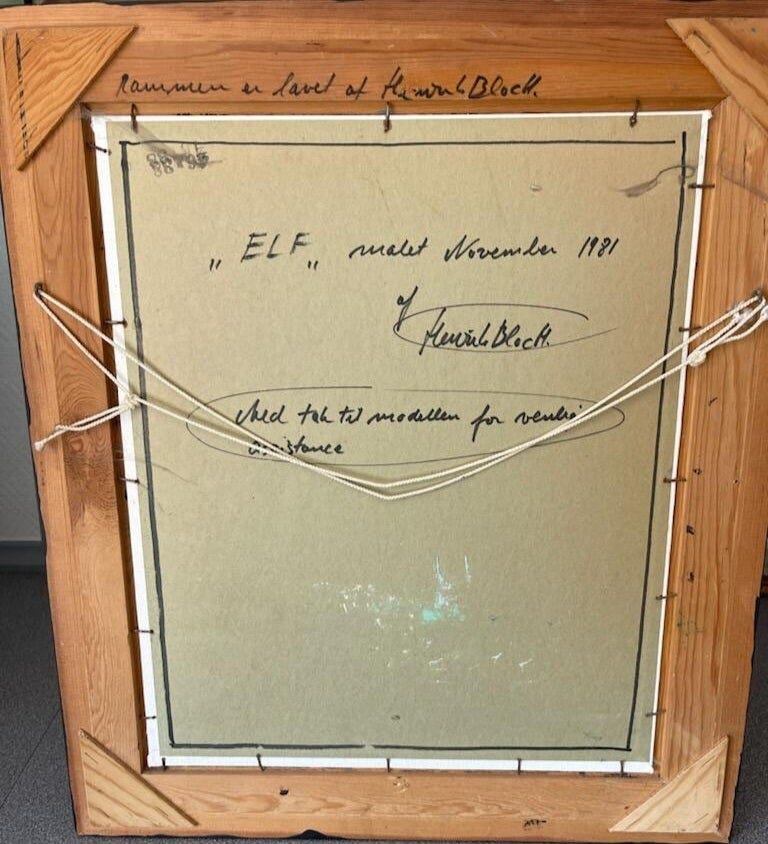 Rammen er lavet af Henrik Bloch.
„ELF„ malet November 1981
af
Henrik Bloch.
Med tak til modellen for venlig
assistance